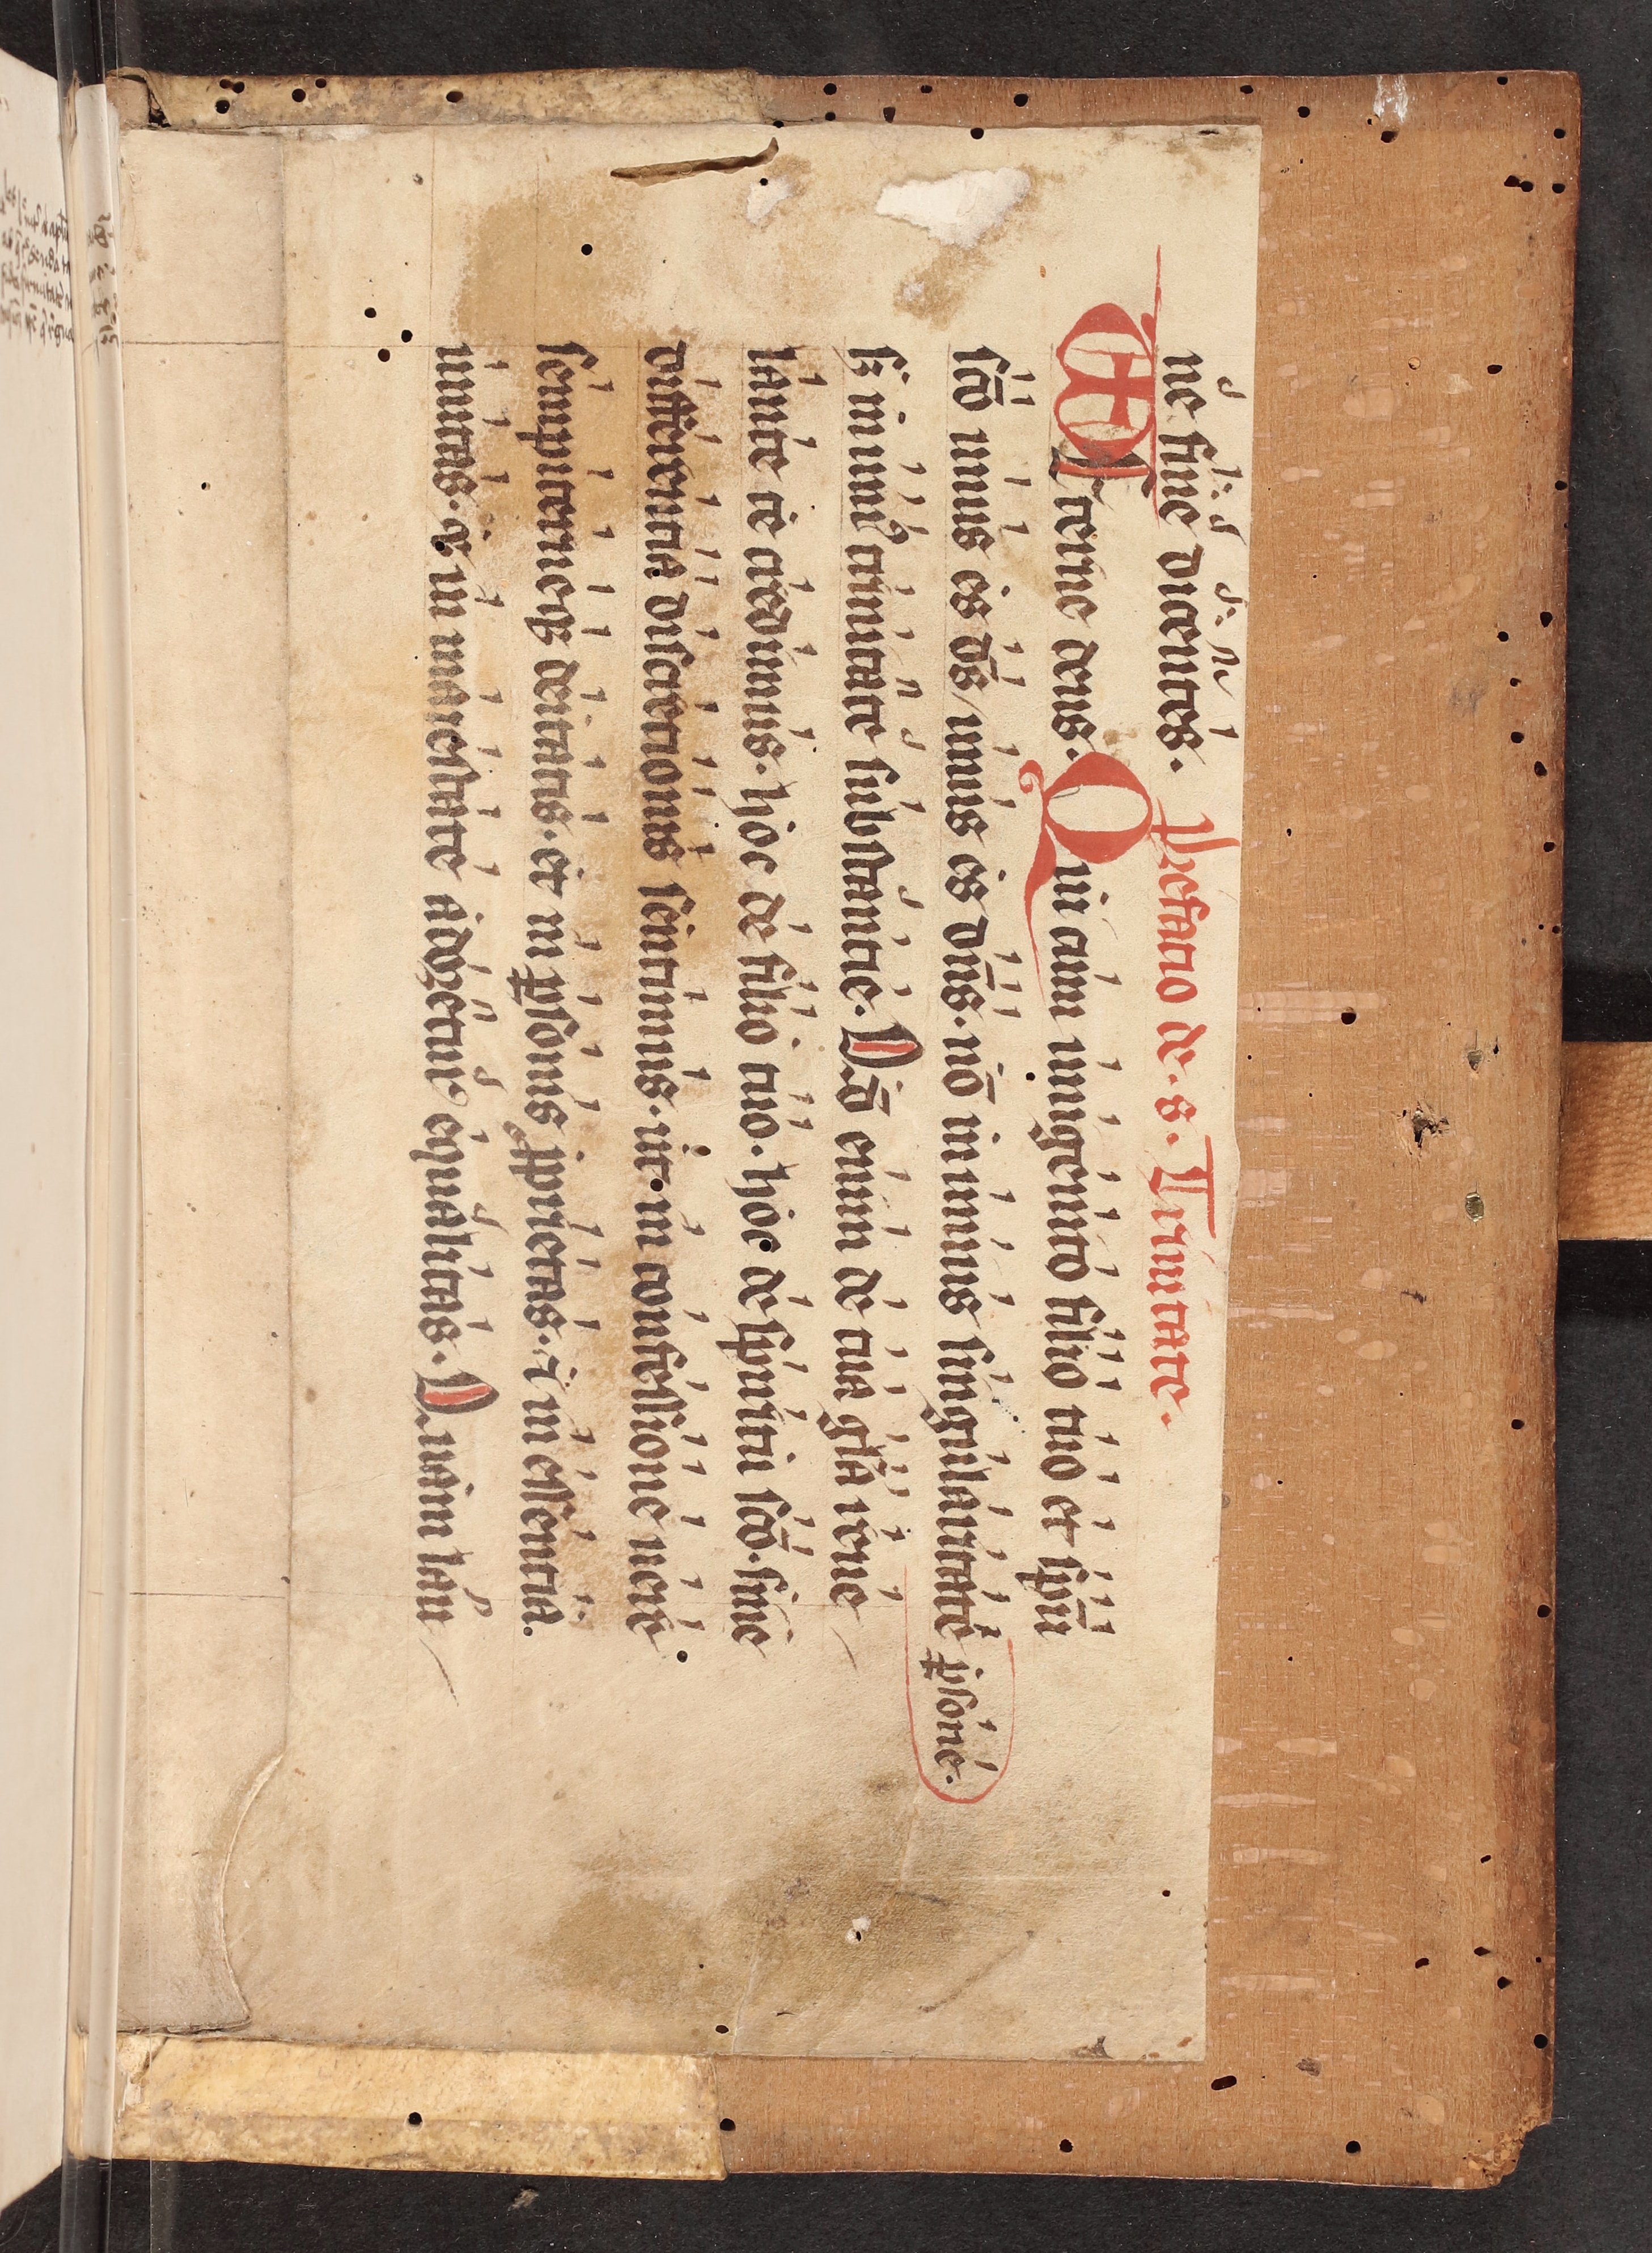 ne sine dicentes. Prefatio de. s. Trinitate.
Eterne deus. Qui cum unigenito filio tuo et spū
scō unus es ds̄ unus es dn̄s. nō in unius singularitate ꝑsone.
sꝫ in uniꝰ trinitate substantie. Qd̄ enim de tua glīa reue
lante te credimus. hoc de filio tuo. hoc de spiritu scō. sine
differentia discretionis sentimus. ut in confessione uere
sempiterneqꝫ deitatis. et in ꝑsonis ꝓprietas. ⁊ in essentia
unitas. et in maiestate adoretur equalitas. Quam lau